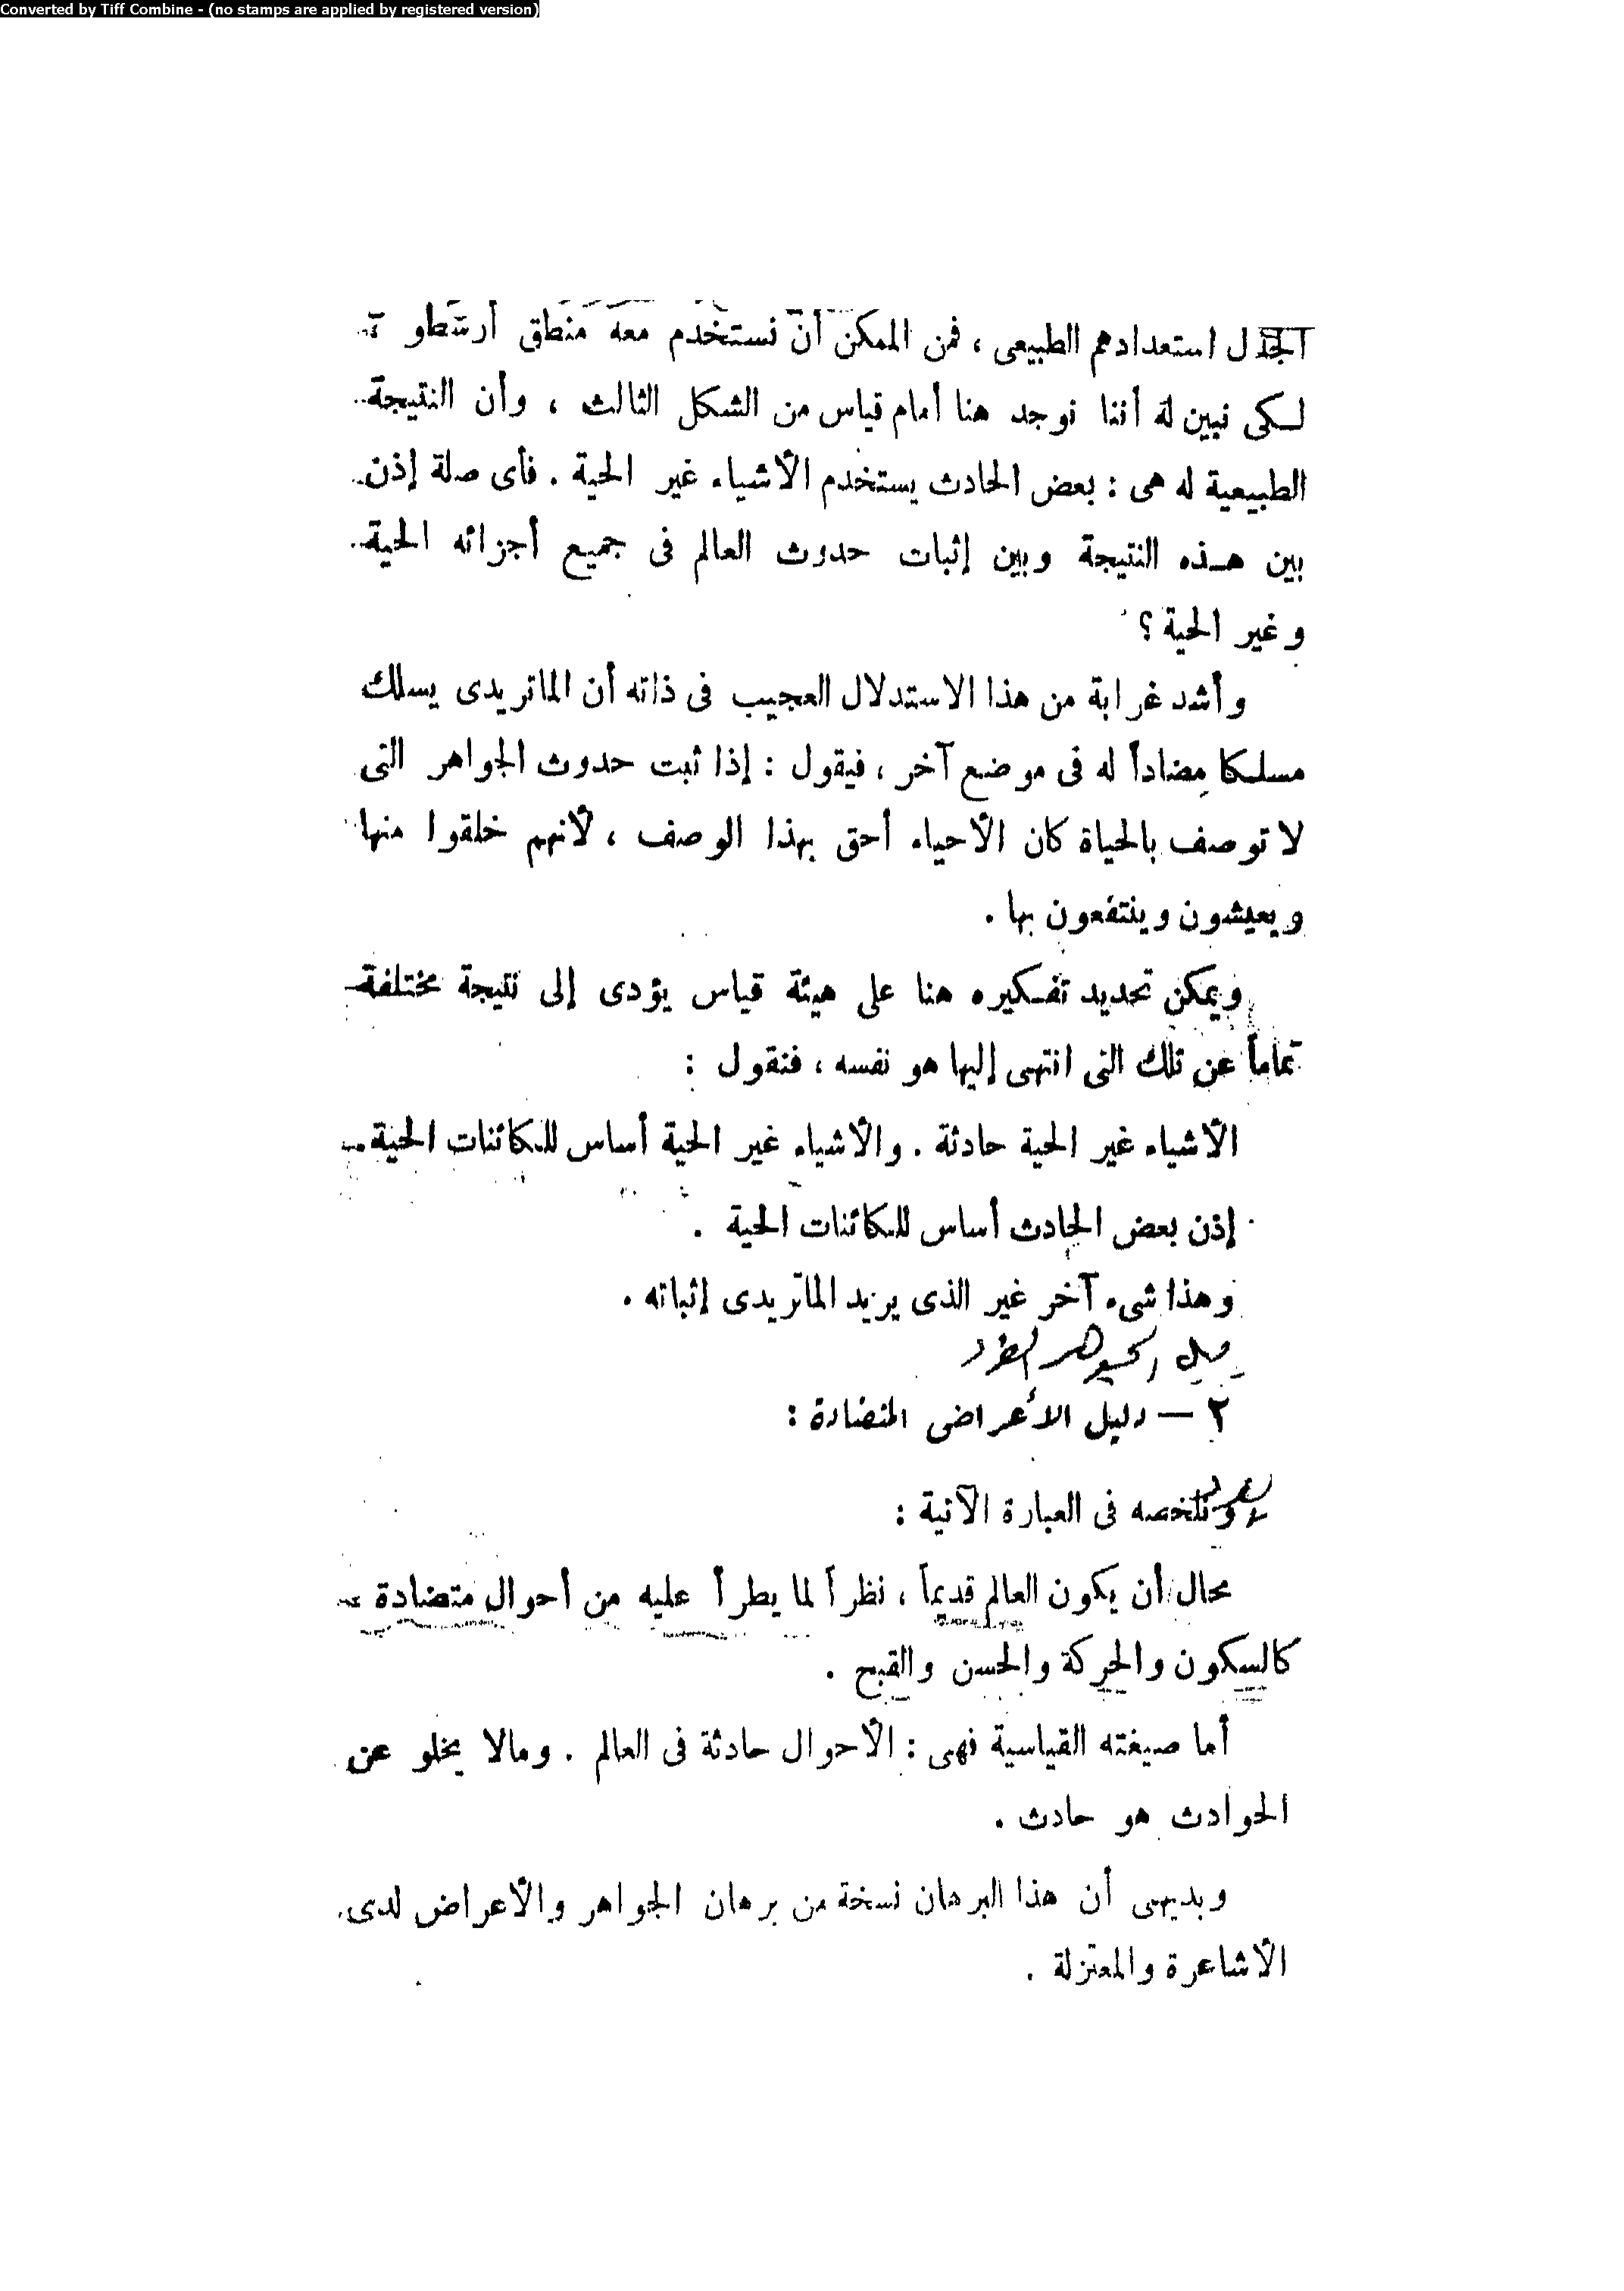 Converted by Tiff Combine - (no stamps are applied by registered version)
الجدل استعدادهم الطبيعى ، فمن الممكن أن نستخدم معه منطق أرسطو
لكى نبين له أننا نوجد هنا أمام قياس من الشكل الثالث ، وأن النتيجة
الطبيعية له هى : بعض الحادث يستخدم الأشياء غير الحية . فأى صلة إذن
بين هذه النتيجة وبين إثبات حدوث العالم فى جميع أجزائه الحية
وغير الحية ؟
وأشد غرابة من هذا الاستدلال العجيب فى ذاته أن الماتريدى يسلك
مسلكا مضاداً له فى موضع آخر ، فيقول : إذا ثبت حدوث الجواهر التى
لا توصف بالحياة كان الأحياء أحق بهذا الوصف ، لأنهم خلقوا منها
ويعيشون وينتفعون بها .
ويمكن تحديد تفكيره هنا على هيئة قياس يؤدى إلى نتيجة مختلفة
تماماً عن تلك التى انتهى إليها هو نفسه ، فنقول :
الأشياء غير الحية حادثة . والأشياء غير الحية أساس للكائنات الحية .
إذن بعض الحادث أساس للكائنات الحية .
وهذا شىء آخر غير الذى يريد الماتريدى إثباته .
الجوهر الفرد
٢ — دليل الأعراض المتضادة :
ونلخصه فى العبارة الآتية :
محال أن يكون العالم قديماً ، نظراً لما يطرأ عليه من أحوال متضادة
كالسكون والحركة والحسن والقبح .
أما صيغته القياسية فهى : الأحوال حادثة فى العالم . ومالا يخلو عن
الحوادث هو حادث .
وبديهى أن هذا البرهان نسخة من برهان الجواهر والأعراض لدى
الأشاعرة والمعتزلة .